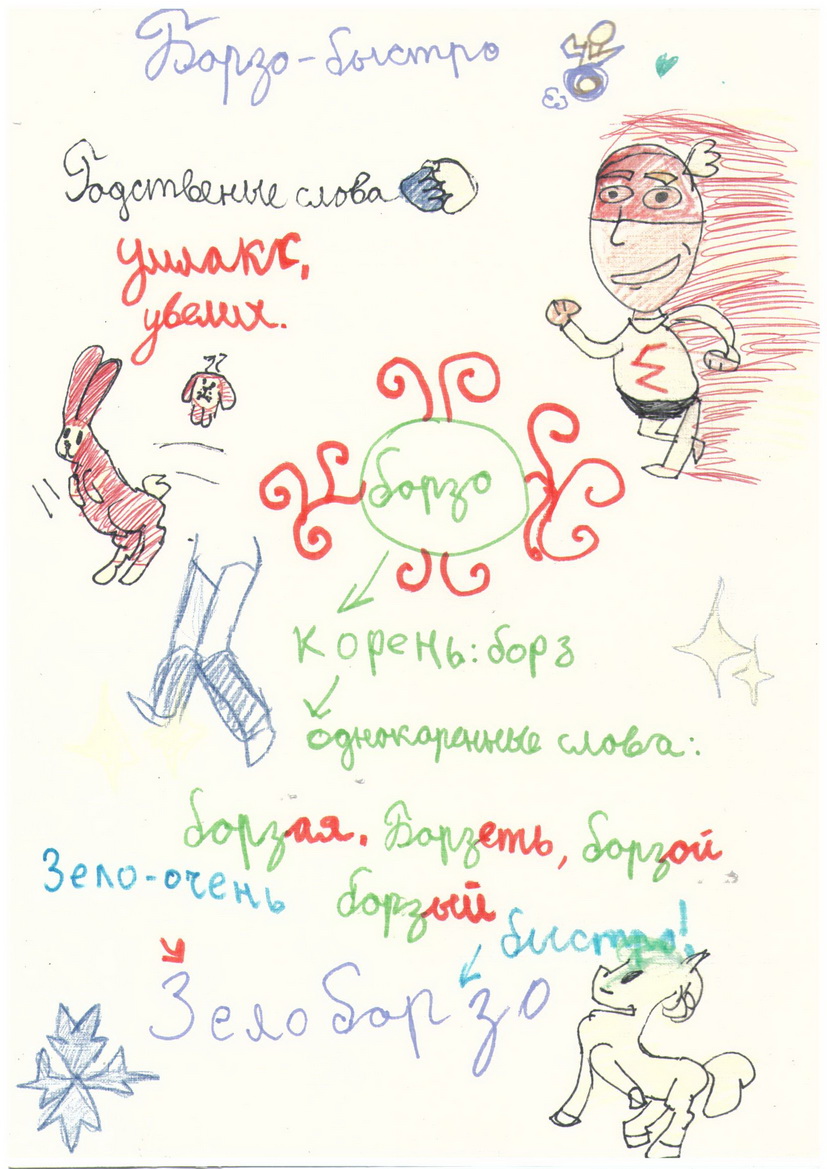 Борзо-быстро
Родственые слова
увелих.
борзо
корень: борз
однокаренные слова:
борзая. Борзеть, борзой
Зело-очень борзый
быстро!
Зело борзо